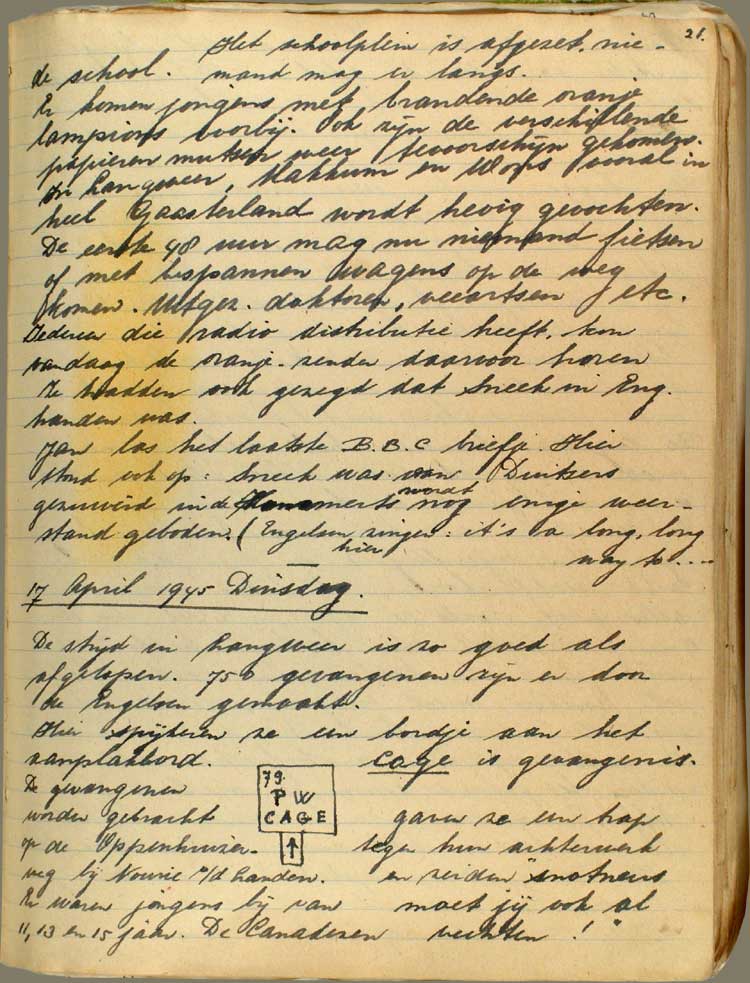 21.
Het schoolplein is afgezet, nie-
de school. mand mag er langs.
Er komen jongens met brandende oranje
lampions voorbij. Ook zijn de verschillende
papieren mutsen weer tevoorschijn gekomen.
In Langweer, Makkum en Wons vooral in
heel Gaasterland wordt hevig gevochten.
De eerste 48 uur mag nu niemand fietsen
of met bespannen wagens op de weg
komen. Uitgez. doktoren, veeartsen etc.
Iedereen die radio distributie heeft, kon
vandaag de oranje-zender daarvoor horen
Ze hadden ook gezegd dat Sneek in Eng.
handen was.
Jan las het laatste B.B.C briefje. Hier
stond ook op: Sneek was van Duitsers
gezuiverd in de wordt nog enige weer-
stand geboden. (Engelsen zingen hier: it's a long, long
way to....
17 April 1945 Dinsdag.
De strijd in Langweer is zo goed als
afgelopen. 750 gevangenen zijn er door
de Engelsen gemaakt.
Hier spijkeren ze een bordje aan het
aanplakbord. Cage is gevangenis.
79.
PW
CAGE
De gevangenen
worden gebracht
op de Oppenhuizer-
weg bij Nouvie v/d Landen.
Er waren jongens bij van
11, 13 en 15 jaar. De Canadezen
gaven ze een trap
tegen hun achterwerk
en zeiden "snotneus
moet jij ook al
vechten!"